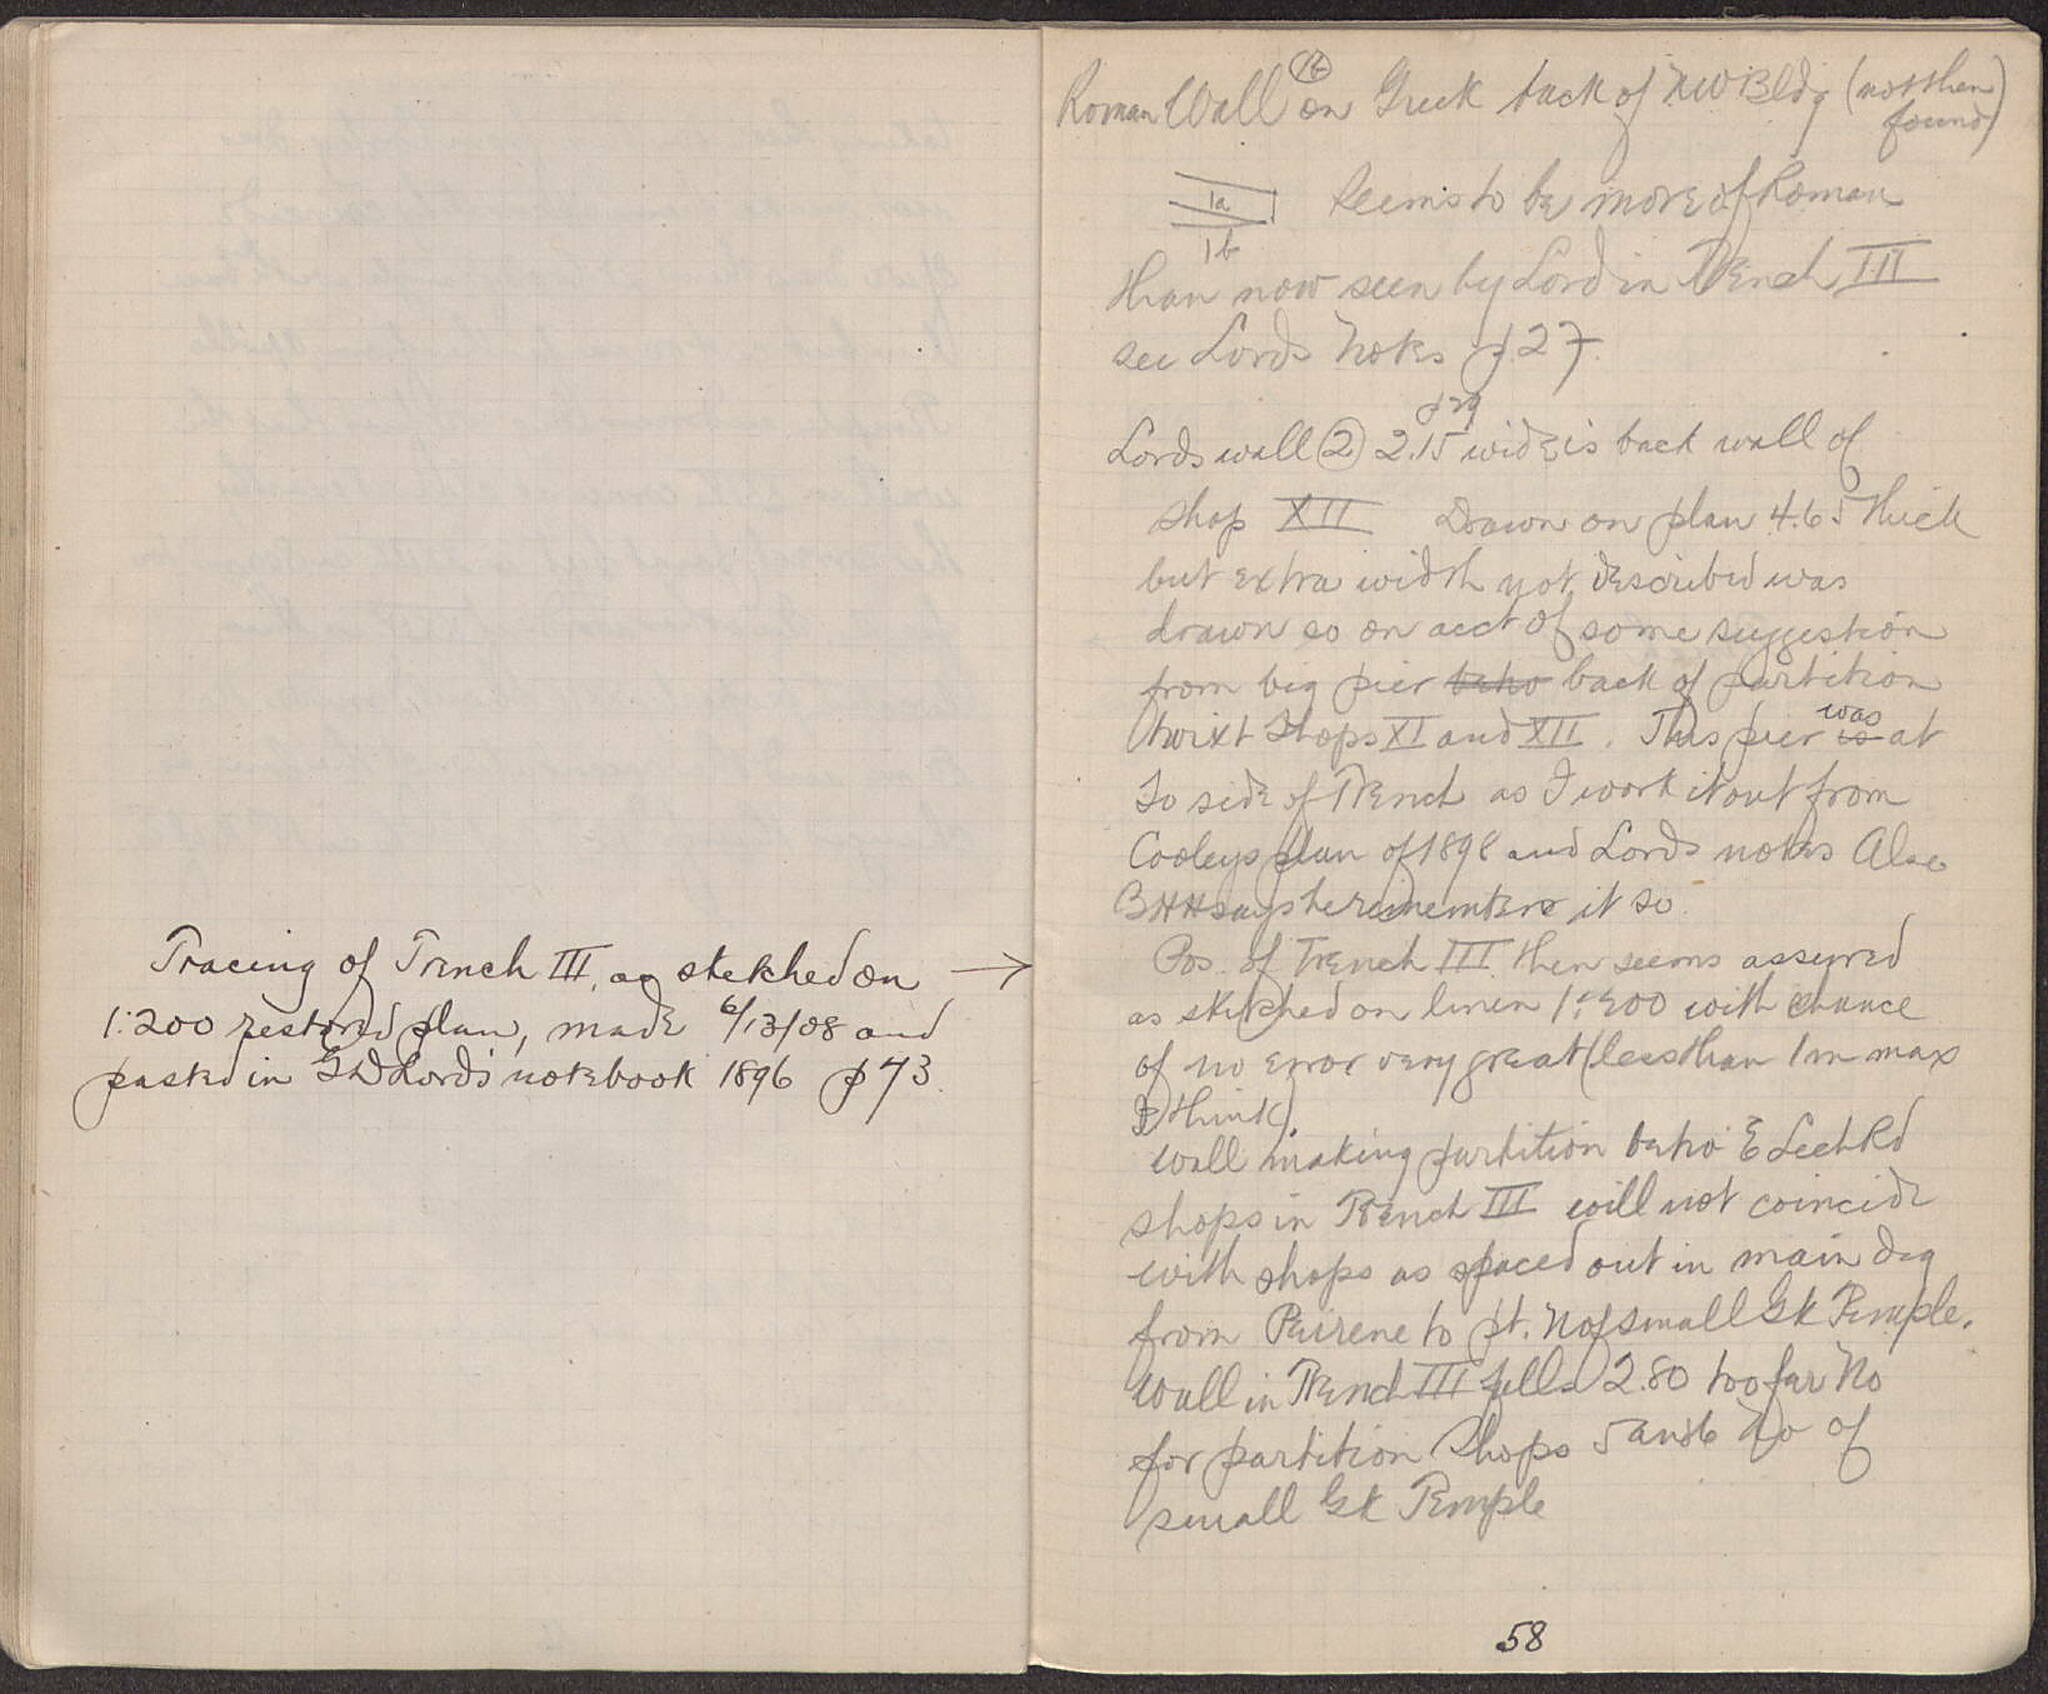 Tracing of Trench III, as sketched on →
1:200 restored plan, made 6/13/08 and
pasted in GDLords notebook 1896 p 73.
Roman Wall (1b) on Greek back of NW Bldg (not then
found)
1a
1b
Seems to be more of Roman
than now seen by Lord in Trench III
see Lords Notes p. 27.
p 29
Lords wall (2) 2.15 wide is back wall of
shop XII Drawn on plan 4.65 thick
but extra width not described was
drawn so on acct of some suggestion
from big pier betw back of partition
twixt Shops XI and XII. This pier is was at
So side of Trench as I work it out from
Cooleys plan of 1898 and Lords notes Also
BHH says he remembers it so.
Pos. of Trench III then seems assured
as sketched on linen 1:200 with chance
of no error very great (less than 1m max
I think).
Wall making partition betw
shops in Trench III will not coincide
with shops as spaced out in main dig
from Peirene to pt. N of small Gk Temple.
Wall in Trench III falls 2.80 too far No
for partition Shops 5 and 6 No of
small Gk Temple
58